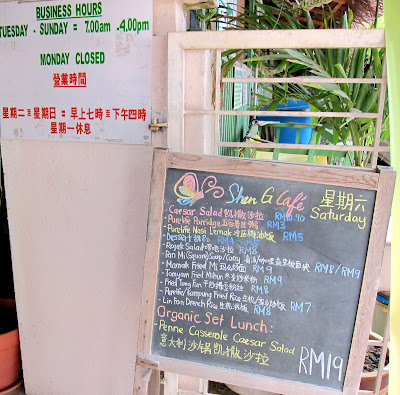 BUSINESS HOURS
TUESDAY - SUNDAY = 7.00am - 4.00pm
MONDAY CLOSED
營業時間
星期二至星期日 = 早上七時至下午四時
星期一休息
Shen Gi Café
星期六
Saturday
- Caesar Salad 凯撒沙拉 RM10.90
- Purelife Porridge RM3
- Purelife Nasi Lemak RM5
- Dessert RM4
- Rojak Salad 沙拉 RM6
- Pan Mi (Square/Soup/Curry) RM8/RM9
- Mamak Fried Mi RM9
- Tomyam Fried Mihun RM9
- Fried Tong Fan RM8
- Purelife/Kampung Fried Rice RM7
- Lin Fan Drench Rice RM8
Organic Set Lunch:
- Penne Casserole Caesar Salad
意大利沙锅凯撒沙拉
RM19